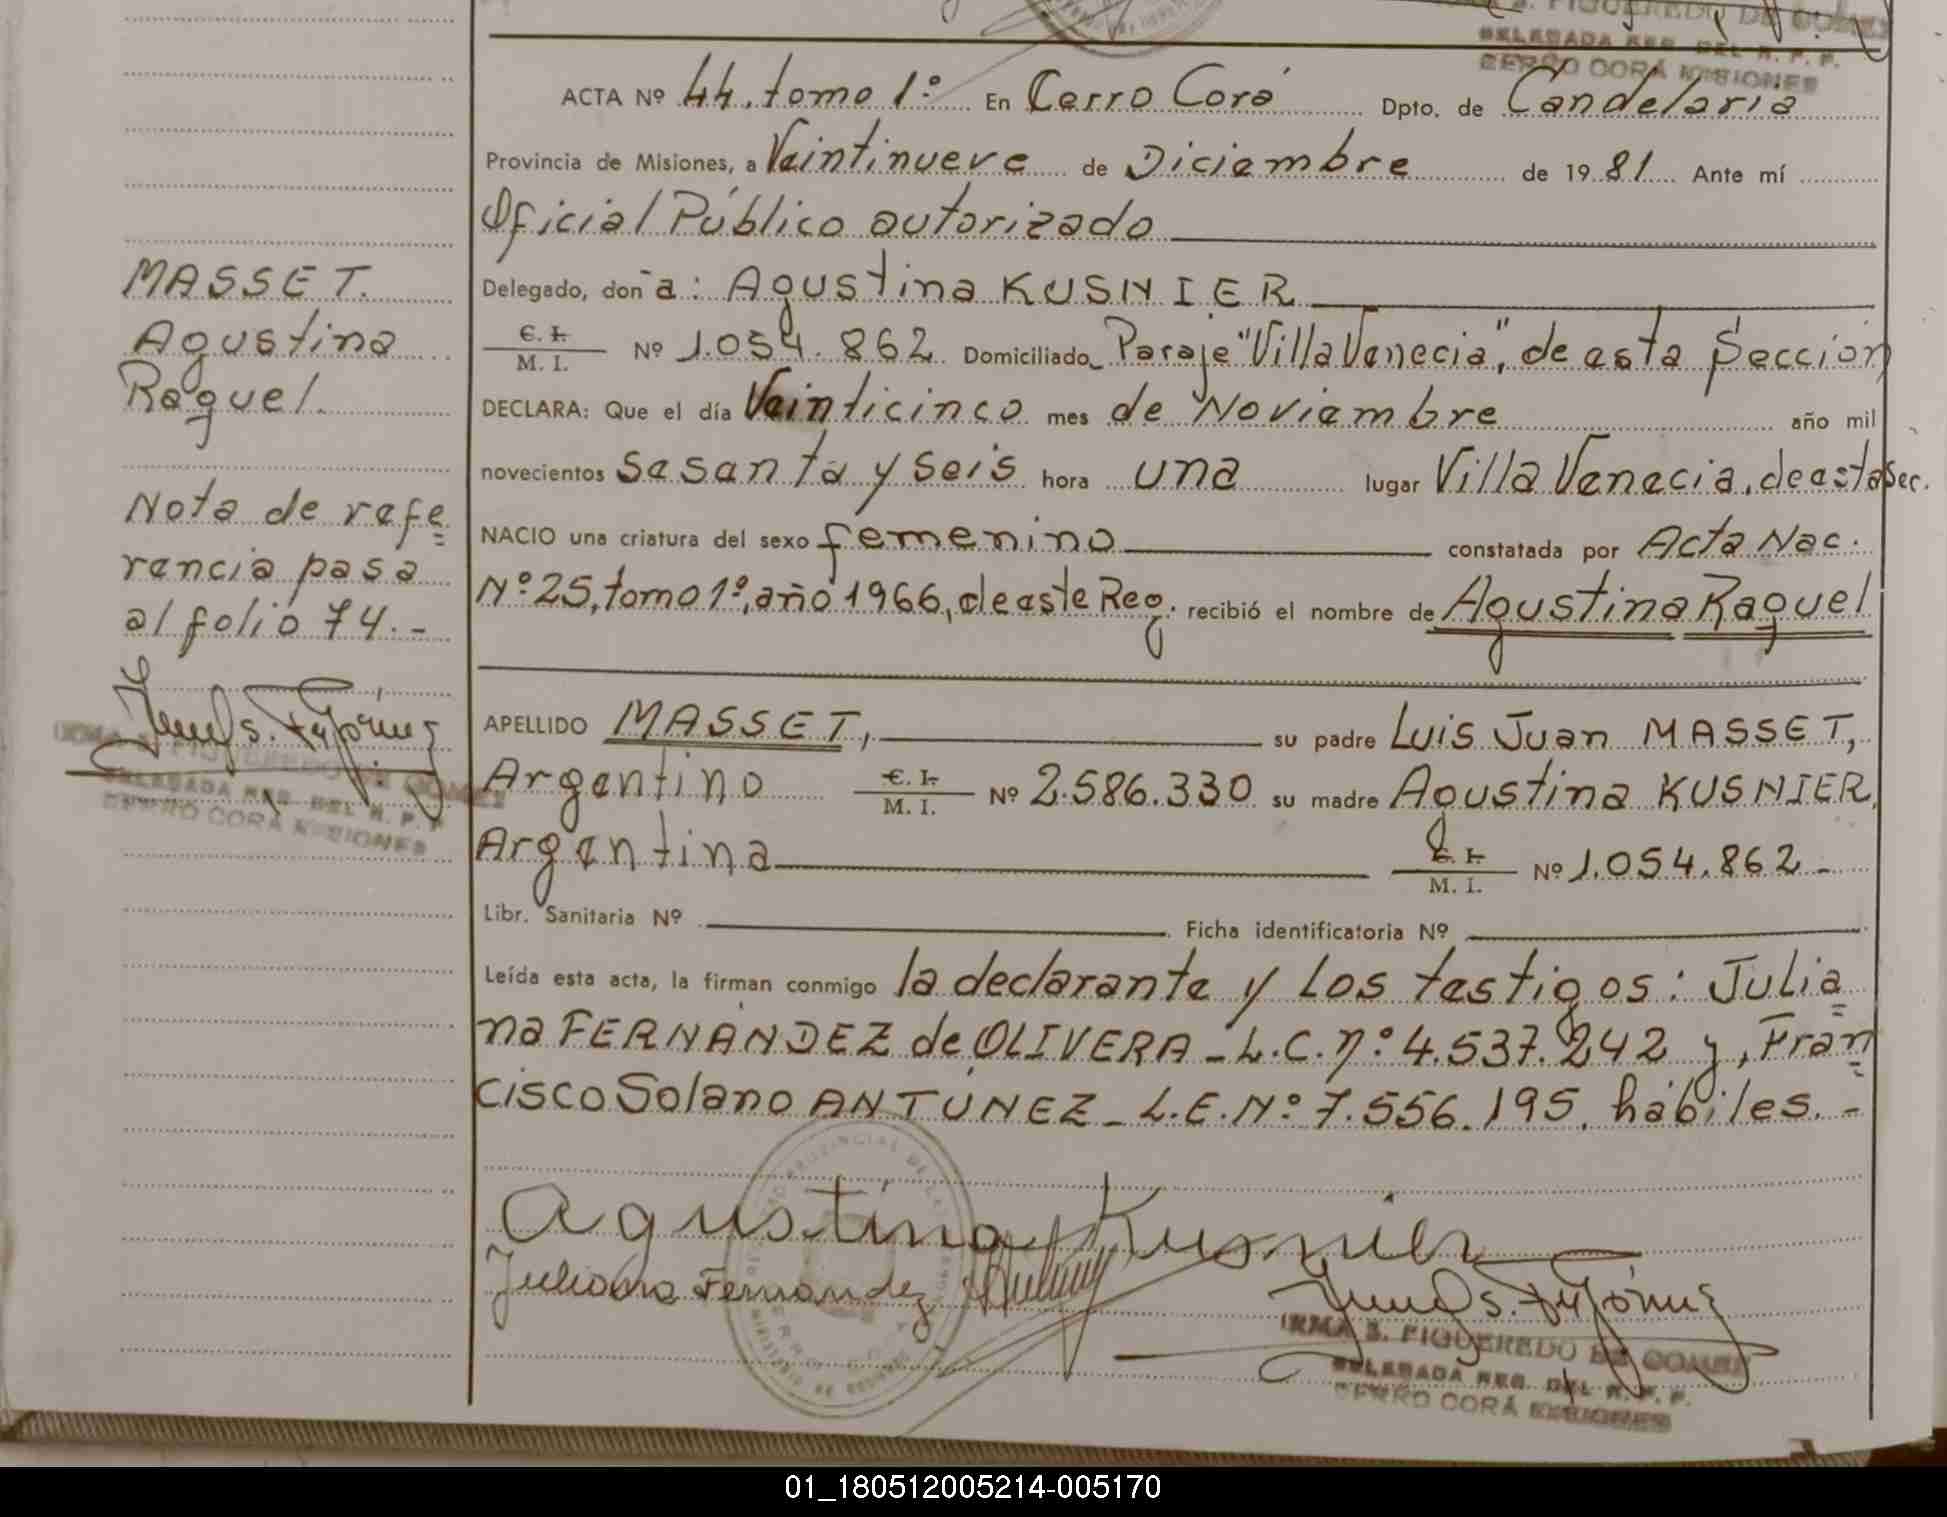 FIGUEREDO DE GOMEZ
DELEGADA REG. DEL R. P. P.
CERRO CORÁ MISIONES
ACTA Nº 44. tomo 1º En Cerro Corá Dpto. de Candelaria
Provincia de Misiones, a Veintinueve de Diciembre de 1981 Ante mí
Oficial Público autorizado
Delegado, don a: Agustina KUSNIER
C. I. / M. I. Nº 1.054.862 Domiciliado Paraje "Villa Venecia", de esta Sección
DECLARA: Que el día Veinticinco mes de Noviembre año mil
novecientos sesenta y seis hora una lugar Villa Venecia, de esta Sec.
NACIO una criatura del sexo femenino constatada por Acta Nac.
Nº 25, tomo 1º, año 1966, de este Reg. recibió el nombre de Agustina Raquel
APELLIDO MASSET, su padre Luis Juan MASSET,
Argentino C. I. / M. I. Nº 2.586.330 su madre Agustina KUSNIER,
Argentina C. I. / M. I. Nº 1.054.862 -
Libr. Sanitaria Nº Ficha identificatoria Nº
Leída esta acta, la firman conmigo la declarante y los testigos: Julia=
na FERNÁNDEZ de OLIVERA - L.C. nº 4.537.242 y, Fran=
cisco Solano ANTÚNEZ - L.E. Nº 7.556.195, hábiles. -
Agustina Kusnier
Juliana Fernandez
IRMA S. FIGUEREDO DE GOMEZ
DELEGADA REG. DEL R. P. P.
CERRO CORÁ MISIONES
MASSET.
Agustina
Raquel.
Nota de refe=
rencia pasa
al folio 74. -
IRMA S. FIGUEREDO DE GOMEZ
DELEGADA REG. DEL R. P. P.
CERRO CORÁ MISIONES
01_180512005214-005170